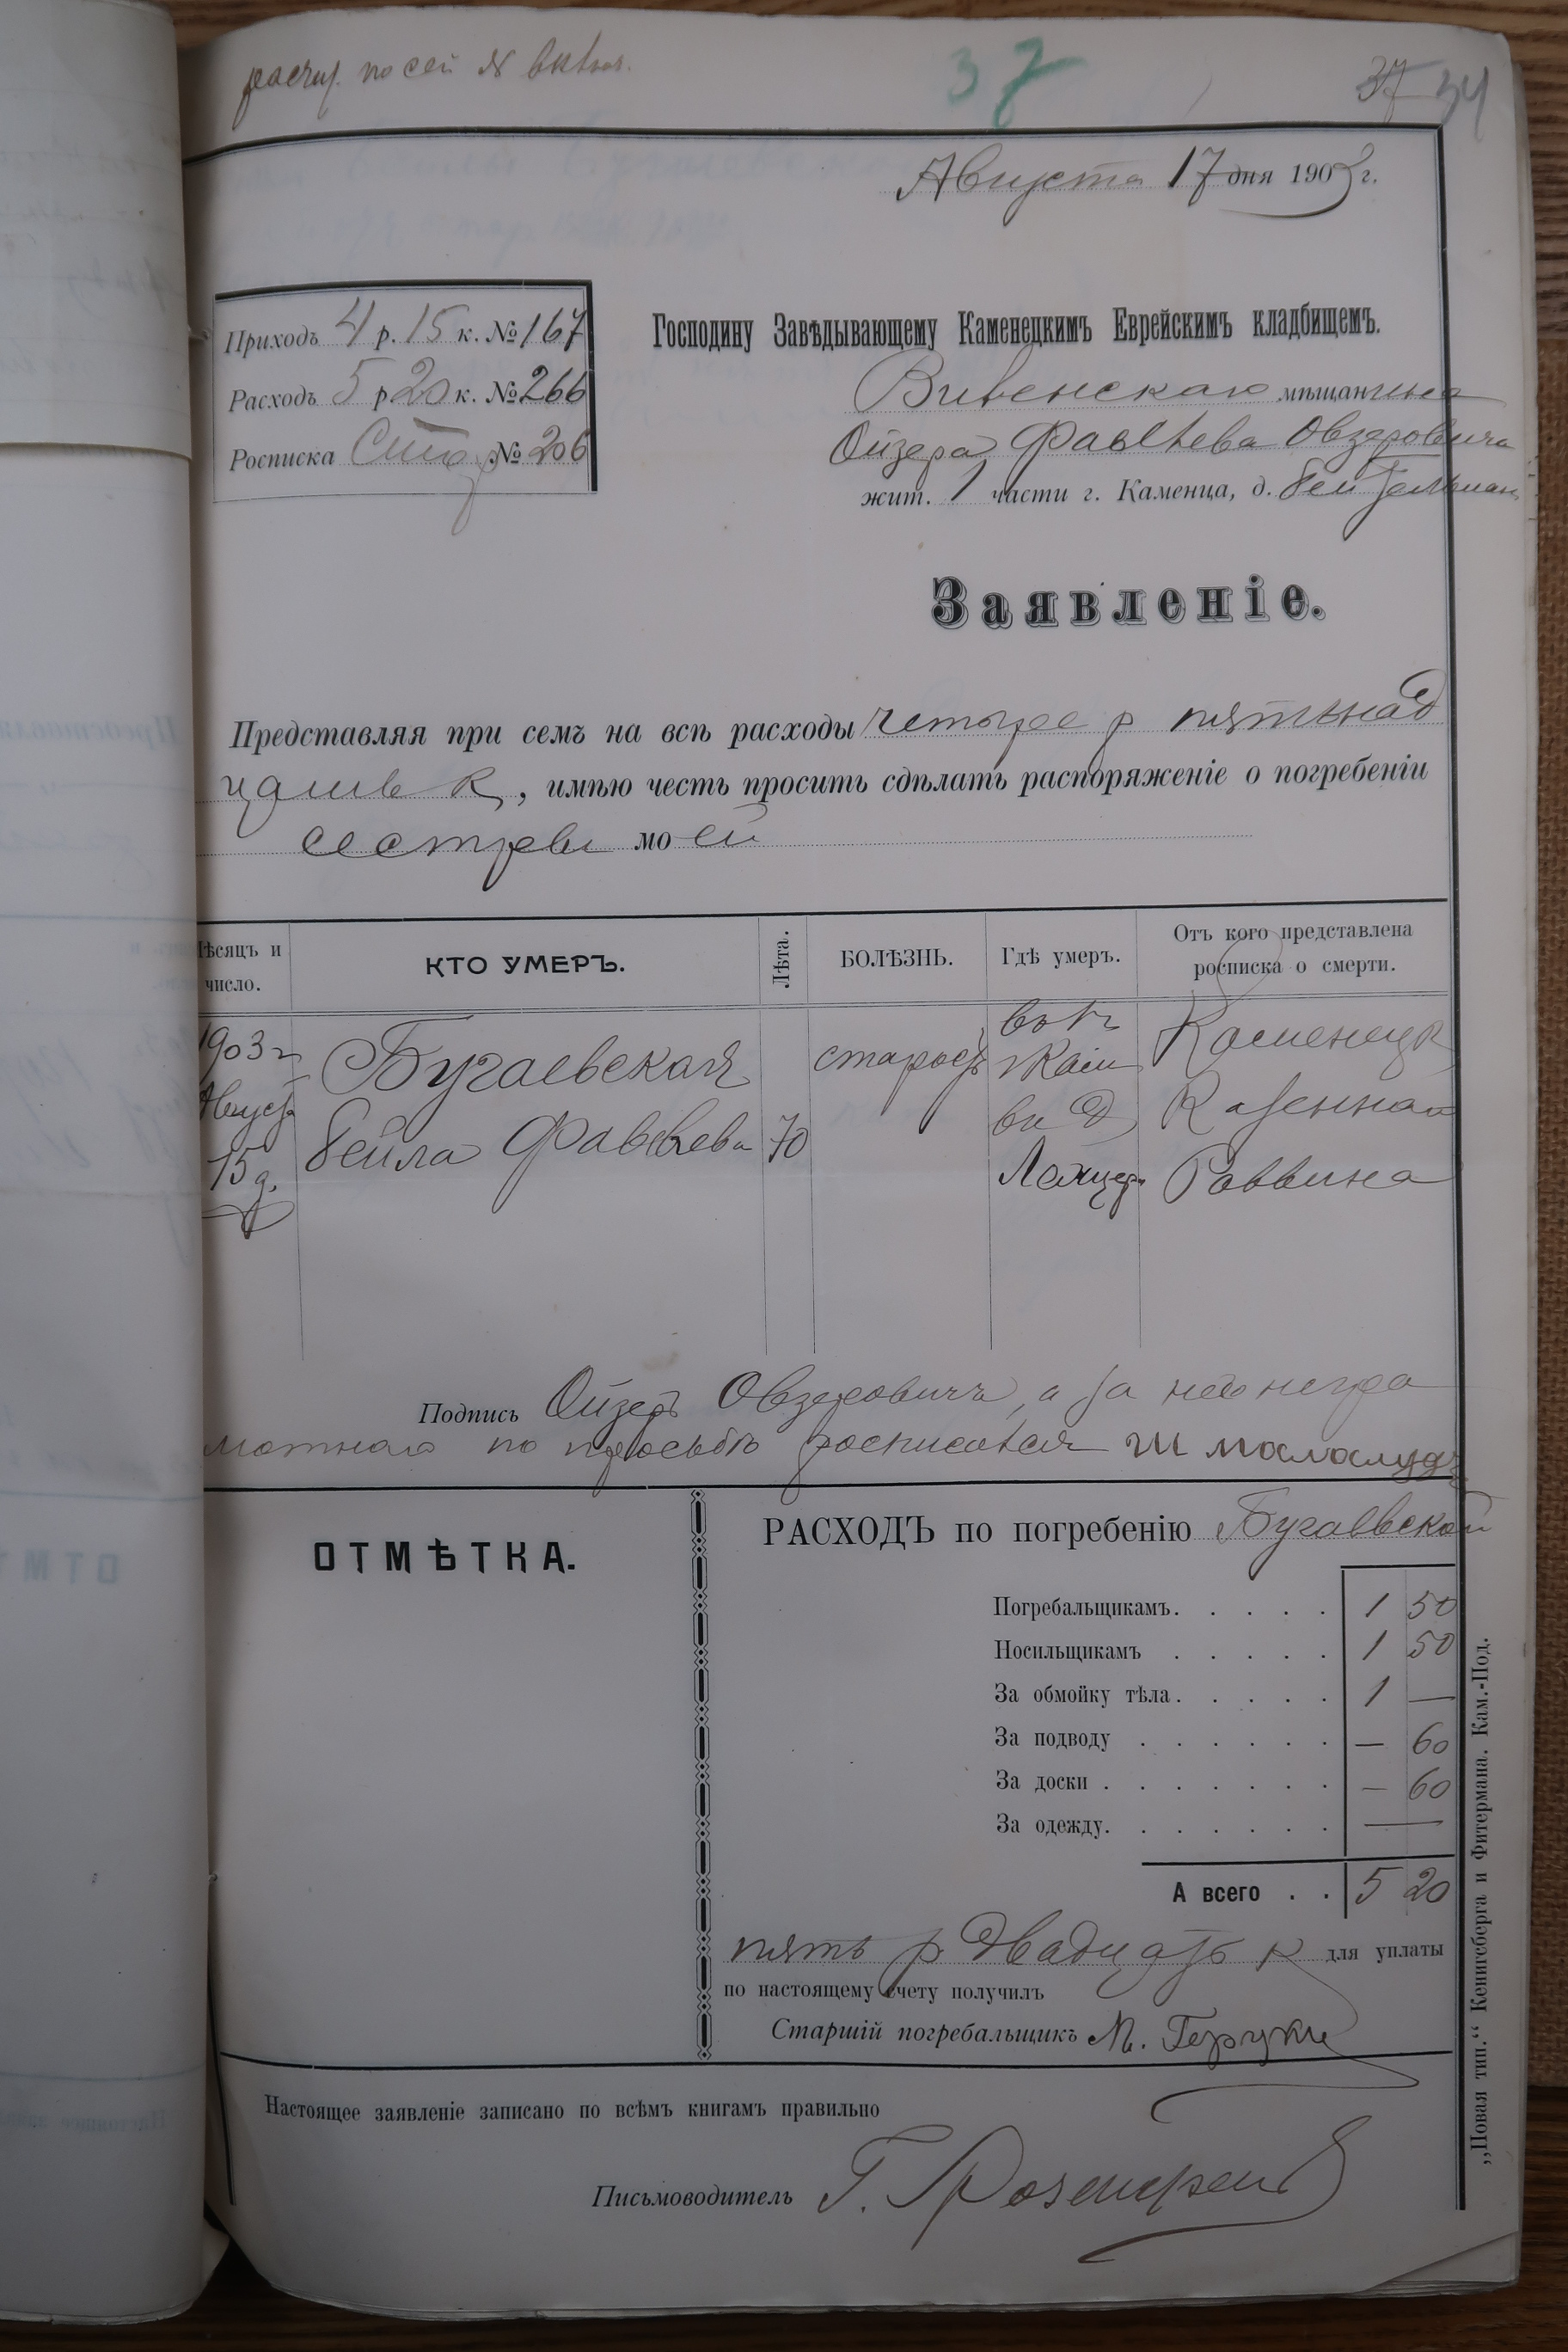 по сей №
37
37 34
Августа 17 дня 1903 г.
Приходъ 4 р. 15 к. № 167
Расходъ 5 р 20 к. № 266
Росписка № 206
Господину Завѣдывающему Каменецкимъ Еврейскимъ кладбищемъ.
мѣщанина
Ойзера Овзеровича
жит. 1 части г. Каменца, д.
Заявленіе.
Представляя при семъ на всѣ расходы четыре р пятьнад
цать к, имѣю честь просить сдѣлать распоряженіе о погребеніи
сестры моей
Мѣсяцъ и число.
КТО УМЕРЪ.
Лѣта.
БОЛѢЗНЬ.
Гдѣ умеръ.
Отъ кого представлена росписка о смерти.
1903 г
Август
15 д.
Бугаевская
Бейла
70
старость
въ г
Кам
въ д
Каменецк
Казеннаго
Раввина
Подпись Ойзеръ Овзеровичъ, а за него негра
мотнаго по просьбѣ росписался Ш
ОТМѢТКА.
РАСХОДЪ по погребенію Бугаевской
Погребальщикамъ. . . . . 1 50
Носильщикамъ . . . . . 1 50
За обмойку тѣла. . . . . 1 —
За подводу . . . . . . — 60
За доски . . . . . . . — 60
За одежду. . . . . . . —
А всего . . 5 20
пять р двадцать к для уплаты
по настоящему счету получилъ
Старшій погребальщикъ М.
Настоящее заявленіе записано по всѣмъ книгамъ правильно
Письмоводитель Г.
„Новая тип.“ Кенигсберга и Фитермана. Кам.-Под.